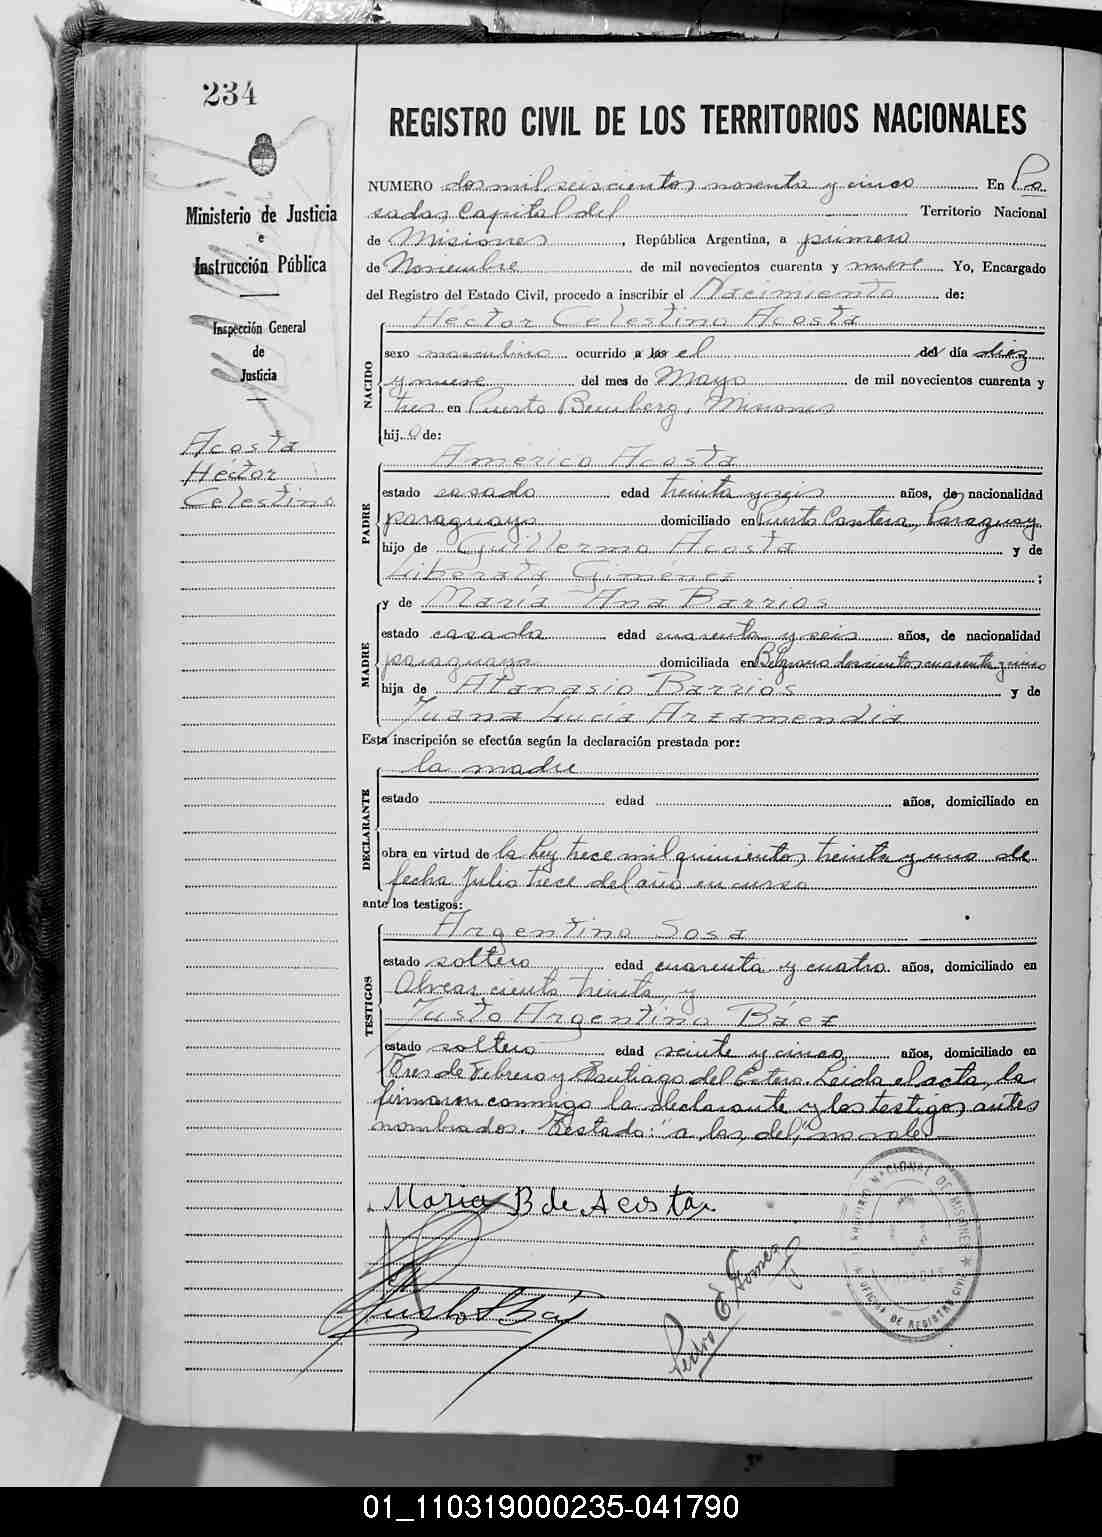 234
REGISTRO CIVIL DE LOS TERRITORIOS NACIONALES
Ministerio de Justicia
e
Instrucción Pública
Inspección General
de
Justicia
Acosta
Héctor
Celestino
NUMERO dos mil seiscientos noventa y cinco En Po
sadas, Capital del Territorio Nacional
de Misiones, República Argentina, a primero
de Noviembre de mil novecientos cuarenta y nueve Yo, Encargado
del Registro del Estado Civil, procedo a inscribir el Nacimiento de:
NACIDO
Héctor Celestino Acosta
sexo masculino ocurrido a las el del día diez
y nueve del mes de Mayo de mil novecientos cuarenta y
tres en Puerto Bemberg, Misiones
hijo de:
PADRE
Américo Acosta
estado casado edad treinta y seis años, de nacionalidad
paraguayo domiciliado en Puerto Cantera, Paraguay
hijo de Guillermo Acosta y de
Liberata Giménez;
MADRE
y de María Ana Barrios
estado casada edad cuarenta y seis años, de nacionalidad
paraguaya domiciliada en Belgrano doscientos cuarenta y cinco
hija de Atanasio Barrios y de
Juana Lucía Arzamendia
Esta inscripción se efectúa según la declaración prestada por:
DECLARANTE
la madre
estado edad años, domiciliado en
obra en virtud de la Ley trece mil quinientos, treinta y uno de
fecha Julio trece del año en curso
ante los testigos:
TESTIGOS
Argentino Sosa
estado soltero edad cuarenta y cuatro años, domiciliado en
Alvear ciento treinta y
Justo Argentino Báez
estado soltero edad veinte y cinco años, domiciliado en
Tres de Febrero y Santiago del Estero. Leída el acta, la
firmaron conmigo la declarante y los testigos antes
nombrados. Testado: "a las, del", no vale.
Maria B de Acosta
Justo A Báez
Pedro E Gomez
OFICINA DE REGISTRO CIVIL
TERRITORIO NACIONAL DE MISIONES
01_110319000235-041790